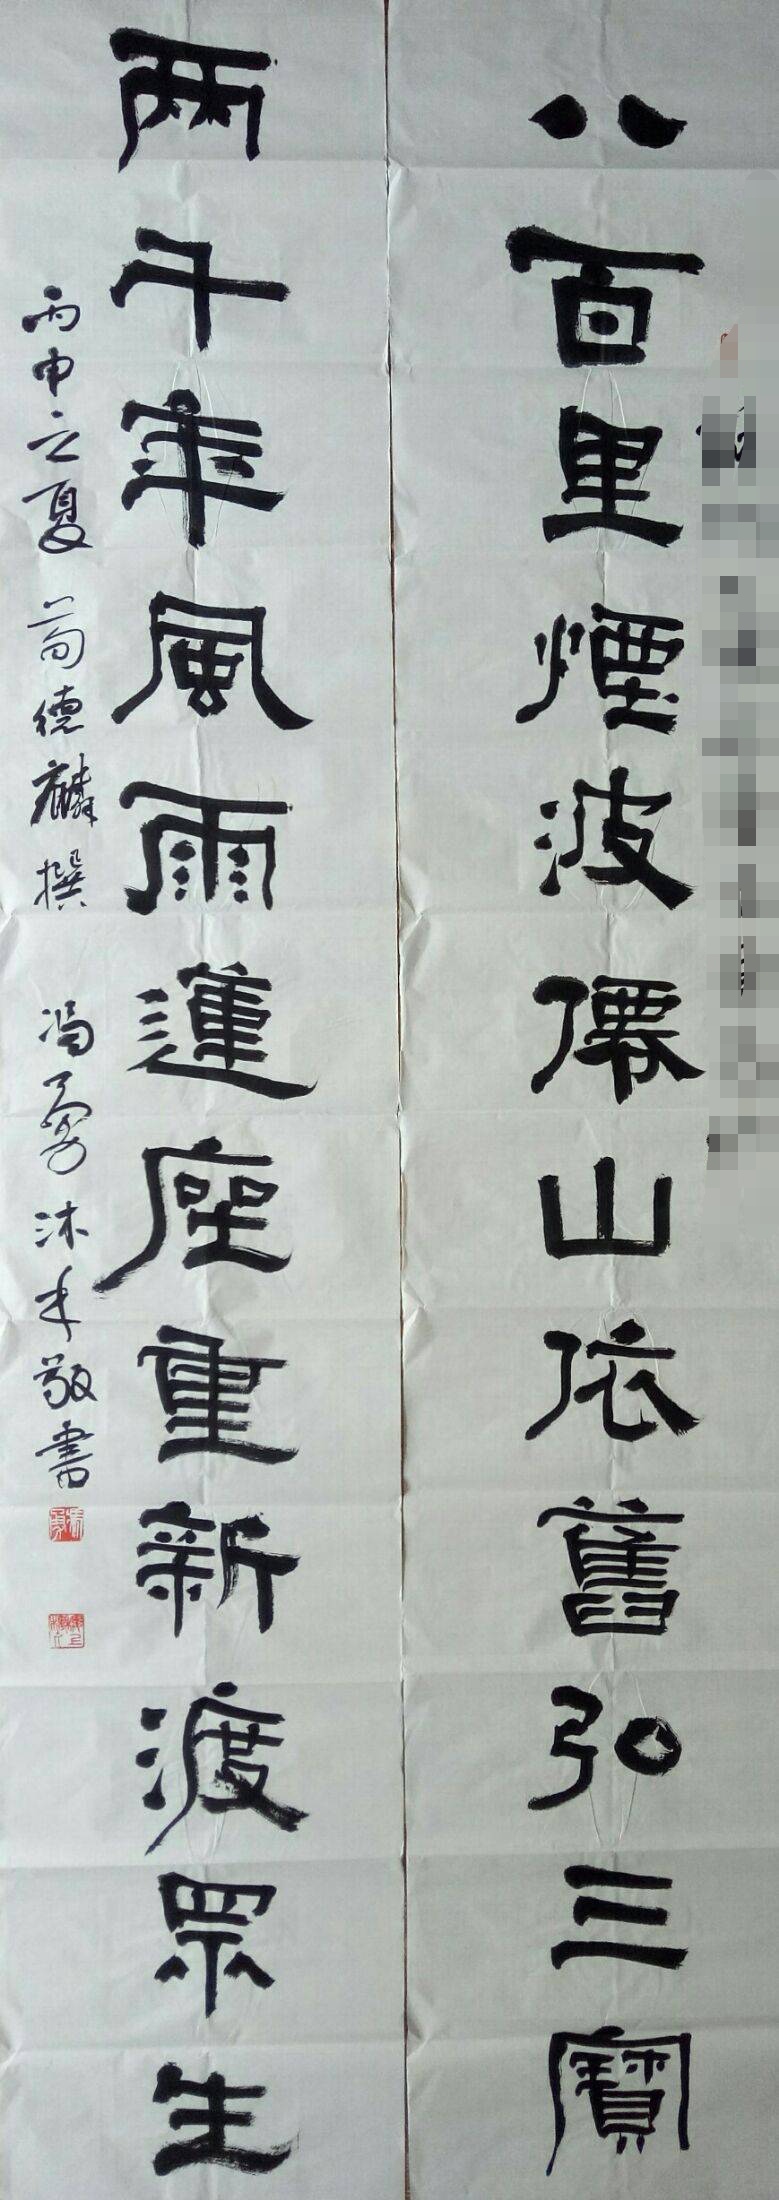 八百里煙波僊山依舊弘三寶
兩千年風雨蓮座重新渡眾生
丙申立夏 荀德麟撰 冯勇沐手敬書